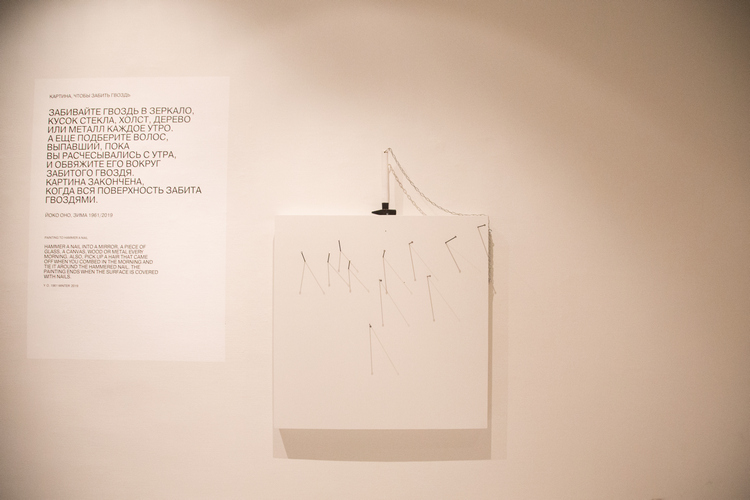 КАРТИНА, ЧТОБЫ ЗАБИТЬ ГВОЗДЬ
ЗАБИВАЙТЕ ГВОЗДЬ В ЗЕРКАЛО,
КУСОК СТЕКЛА, ХОЛСТ, ДЕРЕВО
ИЛИ МЕТАЛЛ КАЖДОЕ УТРО.
А ЕЩЕ ПОДБЕРИТЕ ВОЛОС,
ВЫПАВШИЙ, ПОКА
ВЫ РАСЧЕСЫВАЛИСЬ С УТРА,
И ОБВЯЖИТЕ ЕГО ВОКРУГ
ЗАБИТОГО ГВОЗДЯ.
КАРТИНА ЗАКОНЧЕНА,
КОГДА ВСЯ ПОВЕРХНОСТЬ ЗАБИТА
ГВОЗДЯМИ.
ЙОКО ОНО, ЗИМА 1961/2019
PAINTING TO HAMMER A NAIL
HAMMER A NAIL INTO A MIRROR, A PIECE OF
GLASS, A CANVAS, WOOD OR METAL EVERY
MORNING. ALSO, PICK UP A HAIR THAT CAME
OFF WHEN YOU COMBED IN THE MORNING AND
TIE IT AROUND THE HAMMERED NAIL. THE
PAINTING ENDS WHEN THE SURFACE IS COVERED
WITH NAILS.